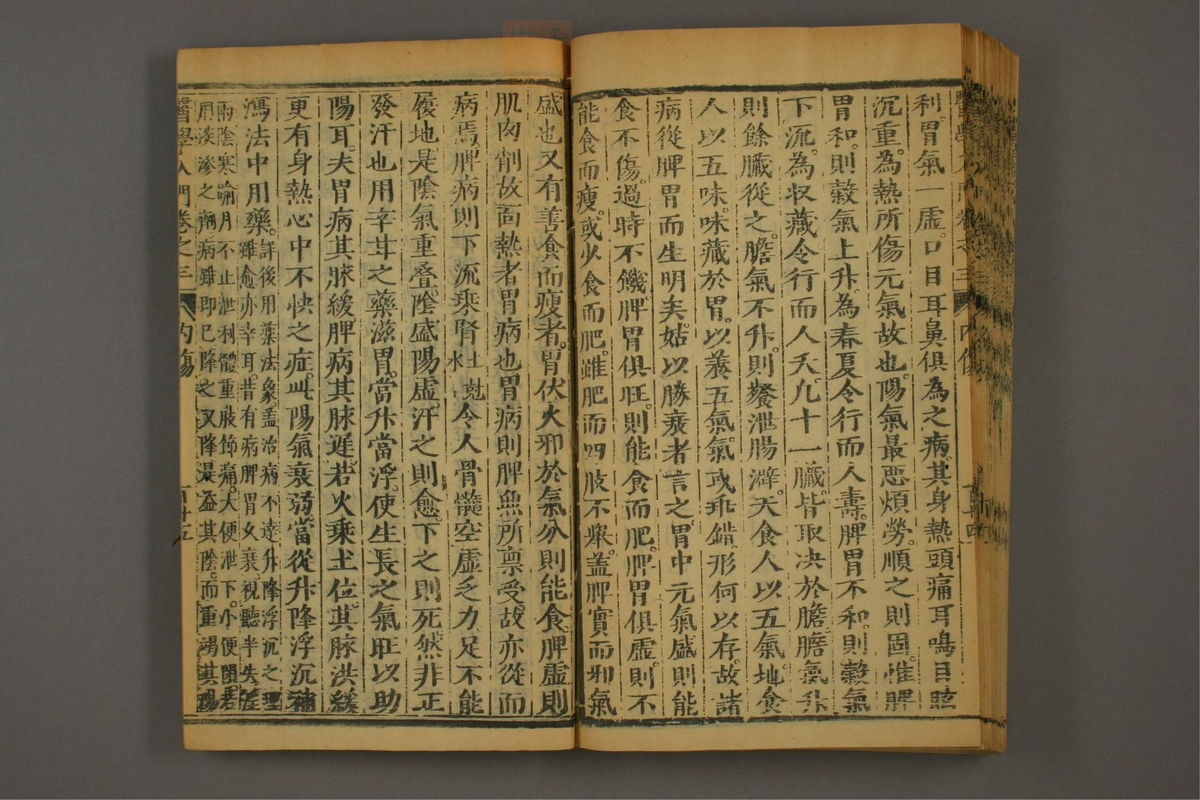 利胃氣一虛口目耳鼻俱為之病其身熱頭痛耳鳴目眩
沉重為熱所傷元氣故也陽氣最惡煩勞順之則固惟脾
胃和則穀氣上升為春夏令行而人壽脾胃不和則穀氣
下流為收藏令行而人夭凡十一臟皆取决於膽膽氣升
則餘臟從之膽氣不升則飱泄腸澼天食人以五氣地食
人以五味味藏於胃以養五氣氣或乖錯形何以存故諸
病從脾胃而生明矣姑以勝衰者言之胃中元氣盛則能
食不傷過時不饑脾胃俱旺則能食而肥脾胃俱虛則不
能食而瘦或少食而肥雖肥而四肢不舉盖脾實而邪氣
盛也又有善食而瘦者胃伏火邪於氣分則能食脾虛則
肌肉削故面熱者胃病也胃病則脾無所禀受故亦從而
病焉脾病則下流乘腎土尅水令人骨髓空虛乏力足不能
履地是陰氣重叠陰盛陽虛汗之則愈下之則死然非正
發汗也用辛甘之藥滋胃當升當浮使生長之氣旺以助
陽耳夫胃病其脉緩脾病其脉遲若火乘土位其脉洪緩
更有身熱心中不快之症此陽氣衰弱當從升降浮沉補
瀉法中用藥詳後用藥法象盖治病不達升降浮沉之理
雖愈亦幸耳昔有病脾胃久衰視聽半失
兩陰寒喻月不止泄利體重肢節痛大便泄下小便閉
用淡滲之劑病雖即已降之又降是益其陰而重竭其陽
醫學入門卷之三 內傷